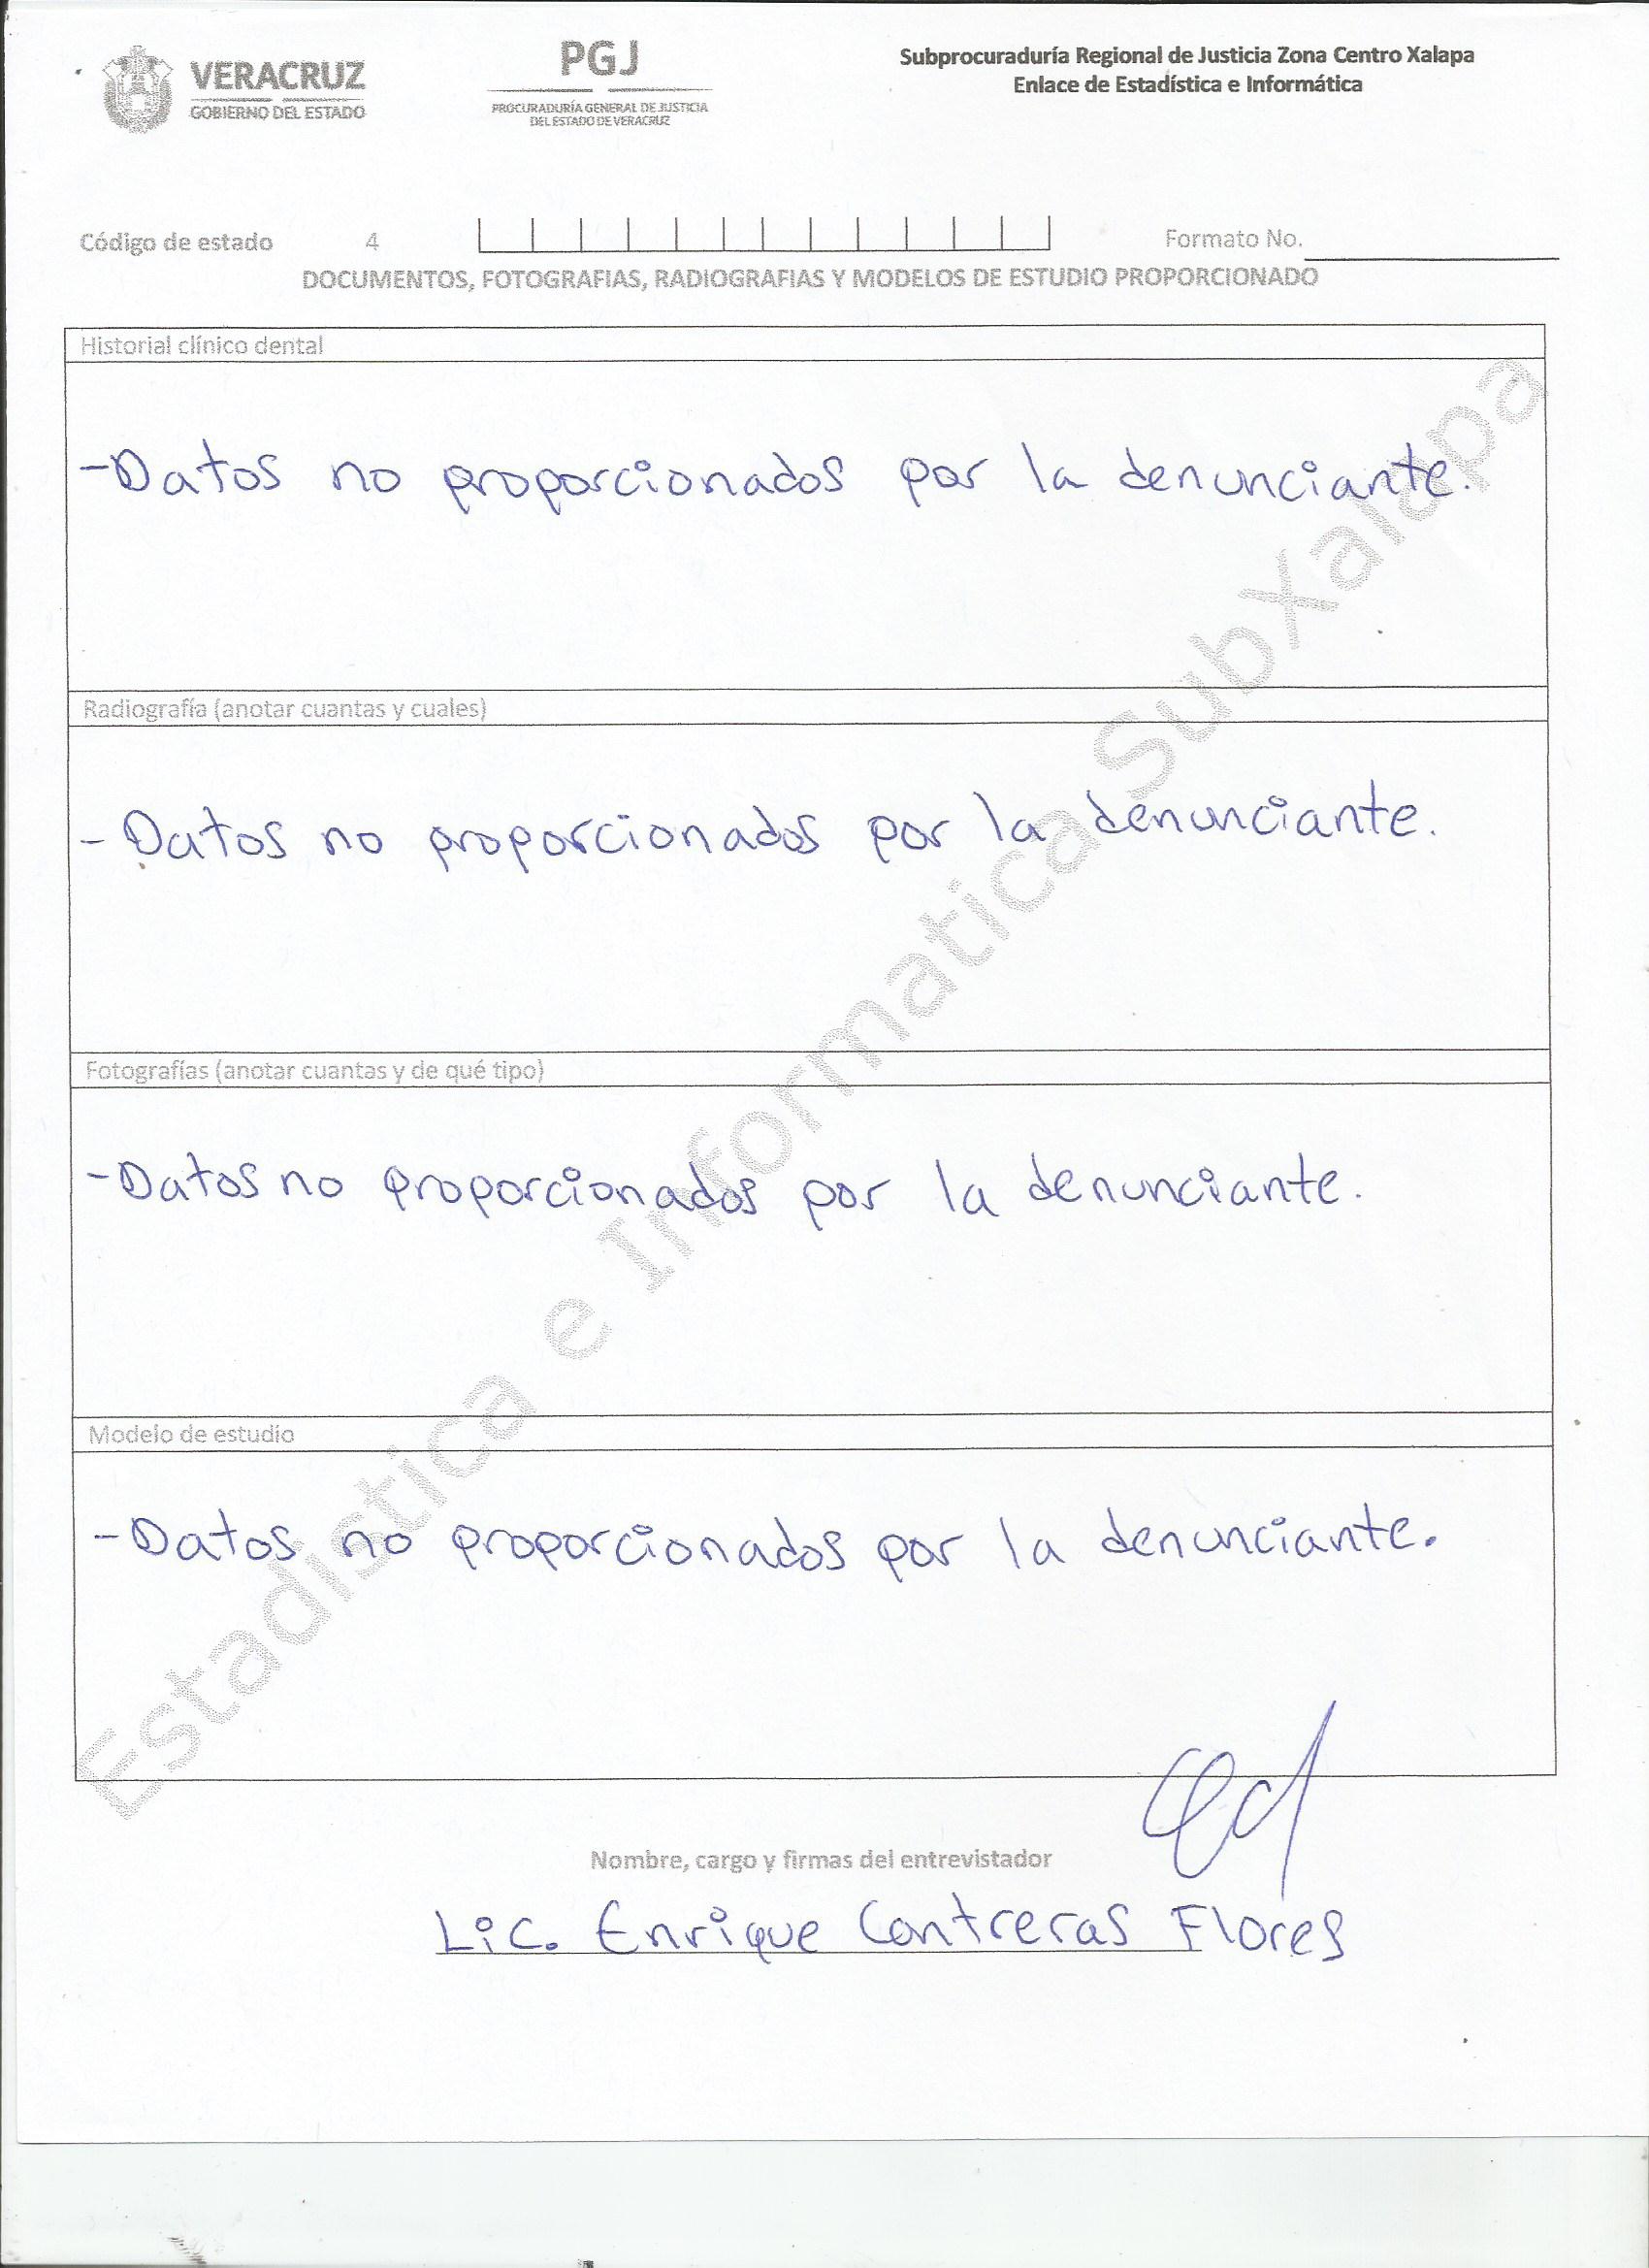 VERACRUZ
GOBIERNO DEL ESTADO
PGJ
PROCURADURÍA GENERAL DE JUSTICIA
DEL ESTADO DE VERACRUZ
Subprocuraduría Regional de Justicia Zona Centro Xalapa
Enlace de Estadística e Informática
Código de estado 4 Formato No.
DOCUMENTOS, FOTOGRAFIAS, RADIOGRAFIAS Y MODELOS DE ESTUDIO PROPORCIONADO
Historial clínico dental
-Datos no proporcionados por la denunciante.
Radiografía (anotar cuantas y cuales)
- Datos no proporcionados por la denunciante.
Fotografías (anotar cuantas y de qué tipo)
-Datos no proporcionados por la denunciante.
Modelo de estudio
-Datos no proporcionados por la denunciante.
Estadistica e Informatica SubXalapa
Nombre, cargo y firmas del entrevistador
Lic. Enrique Contreras Flores